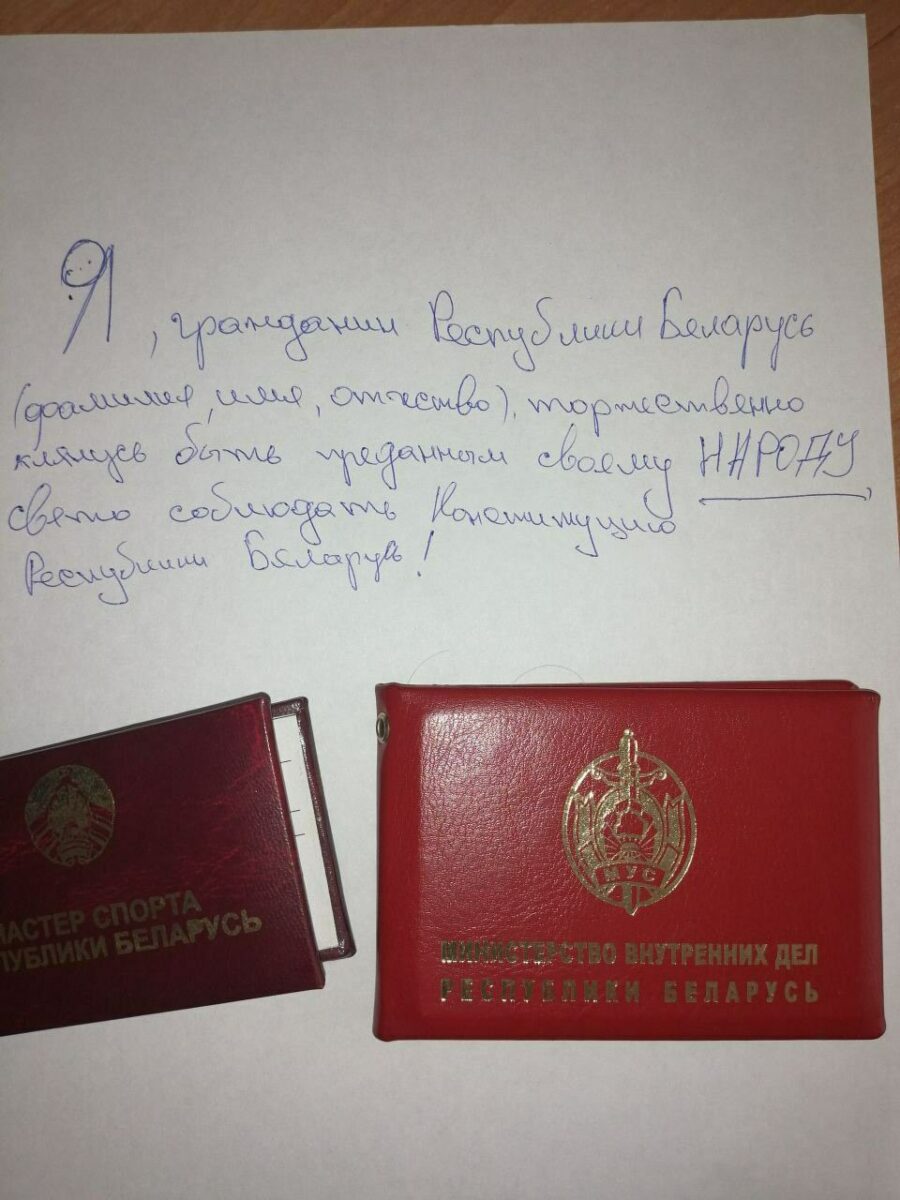 Я, гражданин Республики Беларусь
(фамилия, имя, отчество), торжественно
клянусь быть преданным своему НАРОДУ,
свято соблюдать Конституцию
Республики Беларусь!
МАСТЕР СПОРТА
ПУБЛИКИ БЕЛАРУСЬ
МУС
МИНИСТЕРСТВО ВНУТРЕННИХ ДЕЛ
РЕСПУБЛИКИ БЕЛАРУСЬ